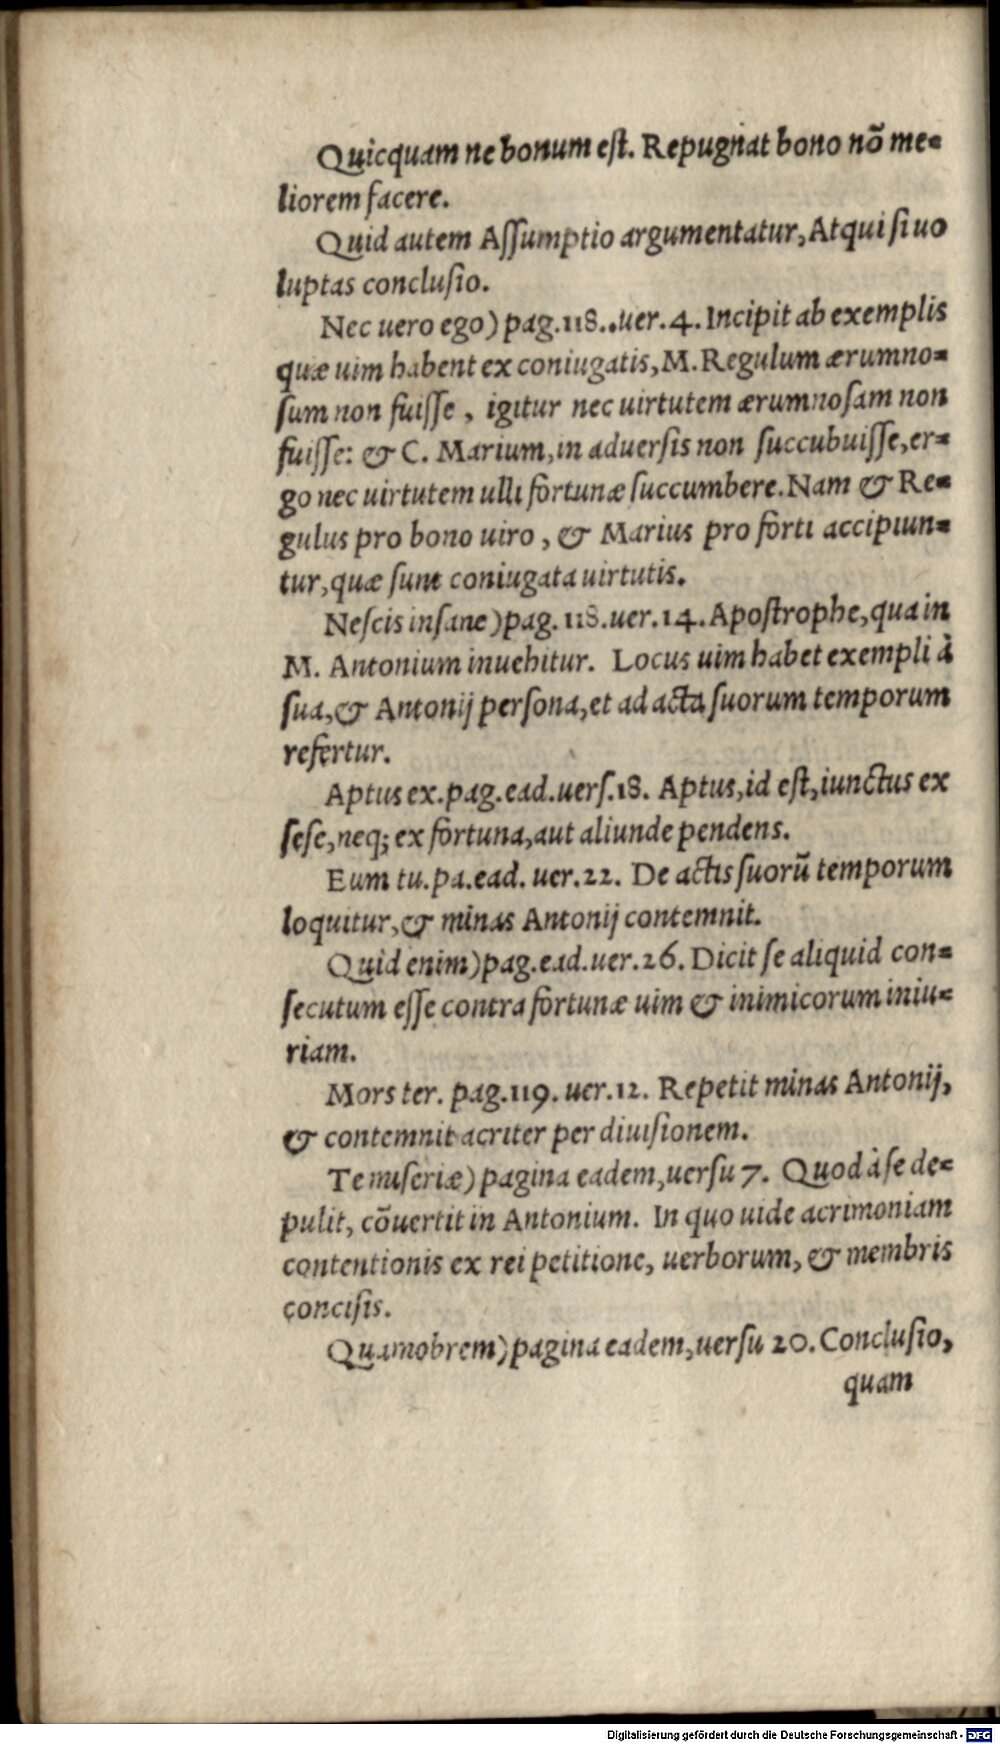 Quicquam ne bonum est. Repugnat bono nõ me-
liorem facere.
Quid autem Assumptio argumentatur, Atqui si uo
luptas conclusio.
Nec uero ego) pag. 118..uer. 4. Incipit ab exemplis
quæ uim habent ex coniugatis, M. Regulum ærumno-
sum non fuisse, igitur nec uirtutem ærumnosam non
fuisse: & C. Marium, in aduersis non succubuisse, er-
go nec uirtutem ulli fortunæ succumbere. Nam & Re-
gulus pro bono uiro, & Marius pro forti accipiun-
tur, quæ sunt coniugata uirtutis.
Nescis insane) pag. 118. uer. 14. Apostrophe, qua in
M. Antonium inuehitur. Locus uim habet exempli à
sua, & Antonij persona, et ad acta suorum temporum
refertur.
Aptus ex. pag. ead. uers. 18. Aptus, id est, iunctus ex
sese, neq; ex fortuna, aut aliunde pendens.
Eum tu. pa. ead. uer. 22. De actis suorũ temporum
loquitur, & minas Antonij contemnit.
Quid enim) pag. ead. uer. 26. Dicit se aliquid con-
secutum esse contra fortunæ uim & inimicorum iniu-
riam.
Mors ter. pag. 119. uer. 12. Repetit minas Antonij,
& contemnit acriter per diuisionem.
Te miseriæ) pagina eadem, uersu 7. Quod à se de-
pulit, cõuertit in Antonium. In quo uide acrimoniam
contentionis ex rei petitione, uerborum, & membris
concisis.
Quamobrem) pagina eadem, uersu 20. Conclusio,
quam
Digitalisierung gefördert durch die Deutsche Forschungsgemeinschaft - DFG